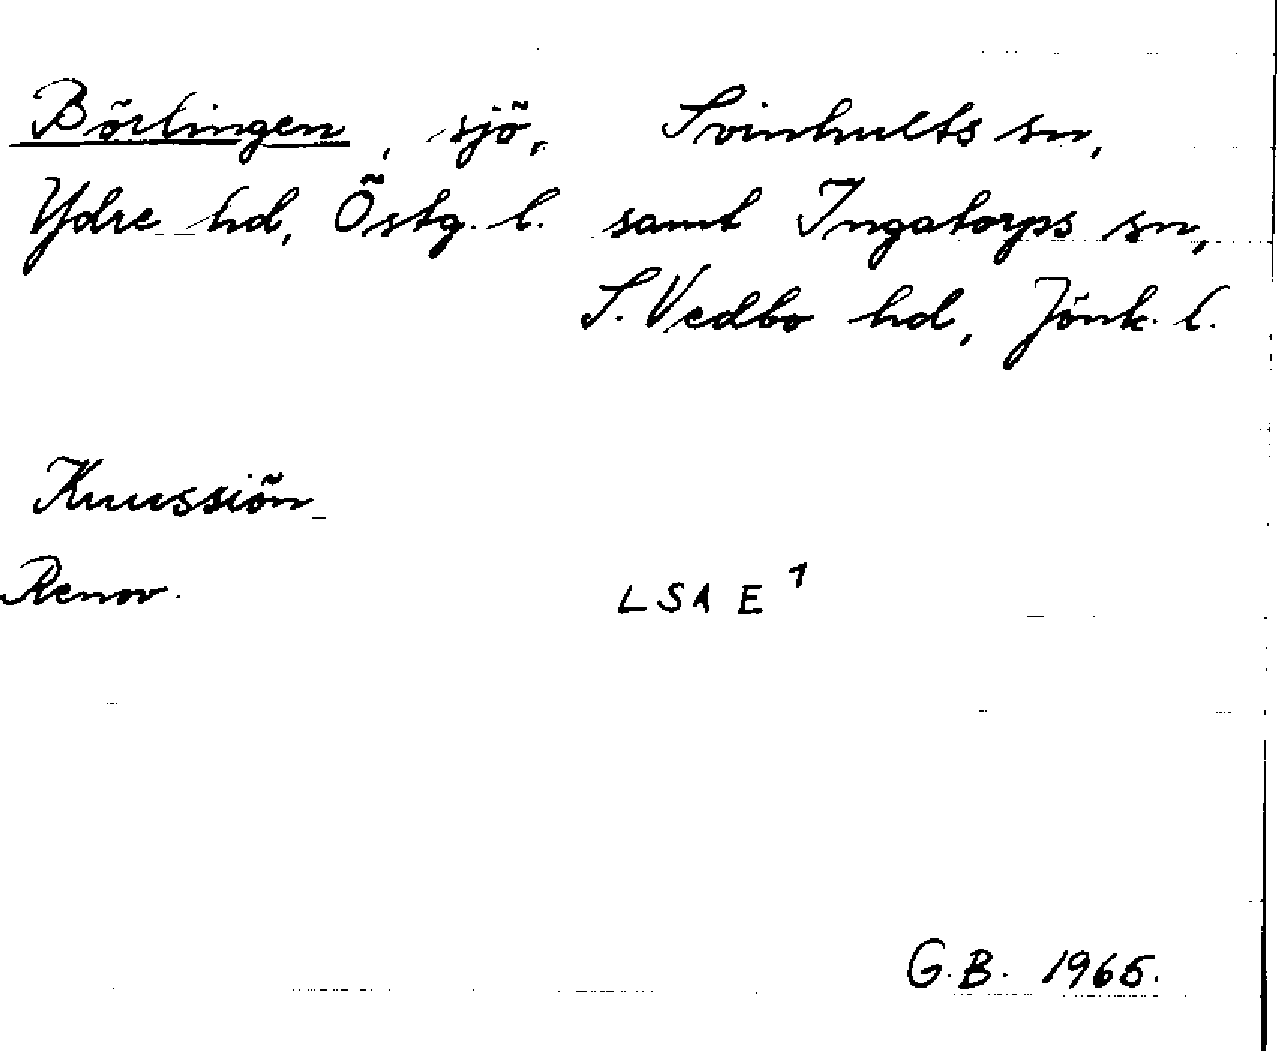 Börlingen, sjö, Svinhults sn,
Ydre hd, Östg. l. samt Ingatorps sn,
S. Vedbo hd, Jönk. l.
Knussiön
Renov. LSA E 1
G.B. 1965.